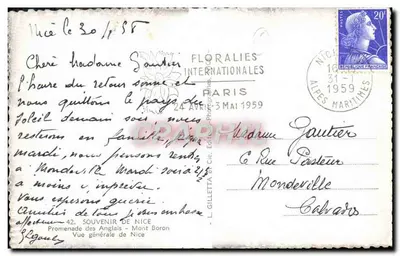 Nice le 30/1/58
Chère Madame Gautier
L'heure du retour sonne et
nous quittons le pays du
soleil demain soir, nous
resterons en famille, pour
mardi, nous pensons rentrer
à Mondeville Mardi soir à 2/3
à moins d'imprévu.
Vous espérons guérie
Amitiés de tous, nous embrasse
affectueusement
42. SOUVENIR DE NICE
Promenade des Anglais - Mont Boron
Vue générale de Nice
FLORALIES
INTERNATIONALES
PARIS
24 AVRIL-3 MAI 1959
20F
NICE
31-
1959
ALPES MARITIMES
Madame Gautier
6 Rue Pasteur
Mondeville
Calvados